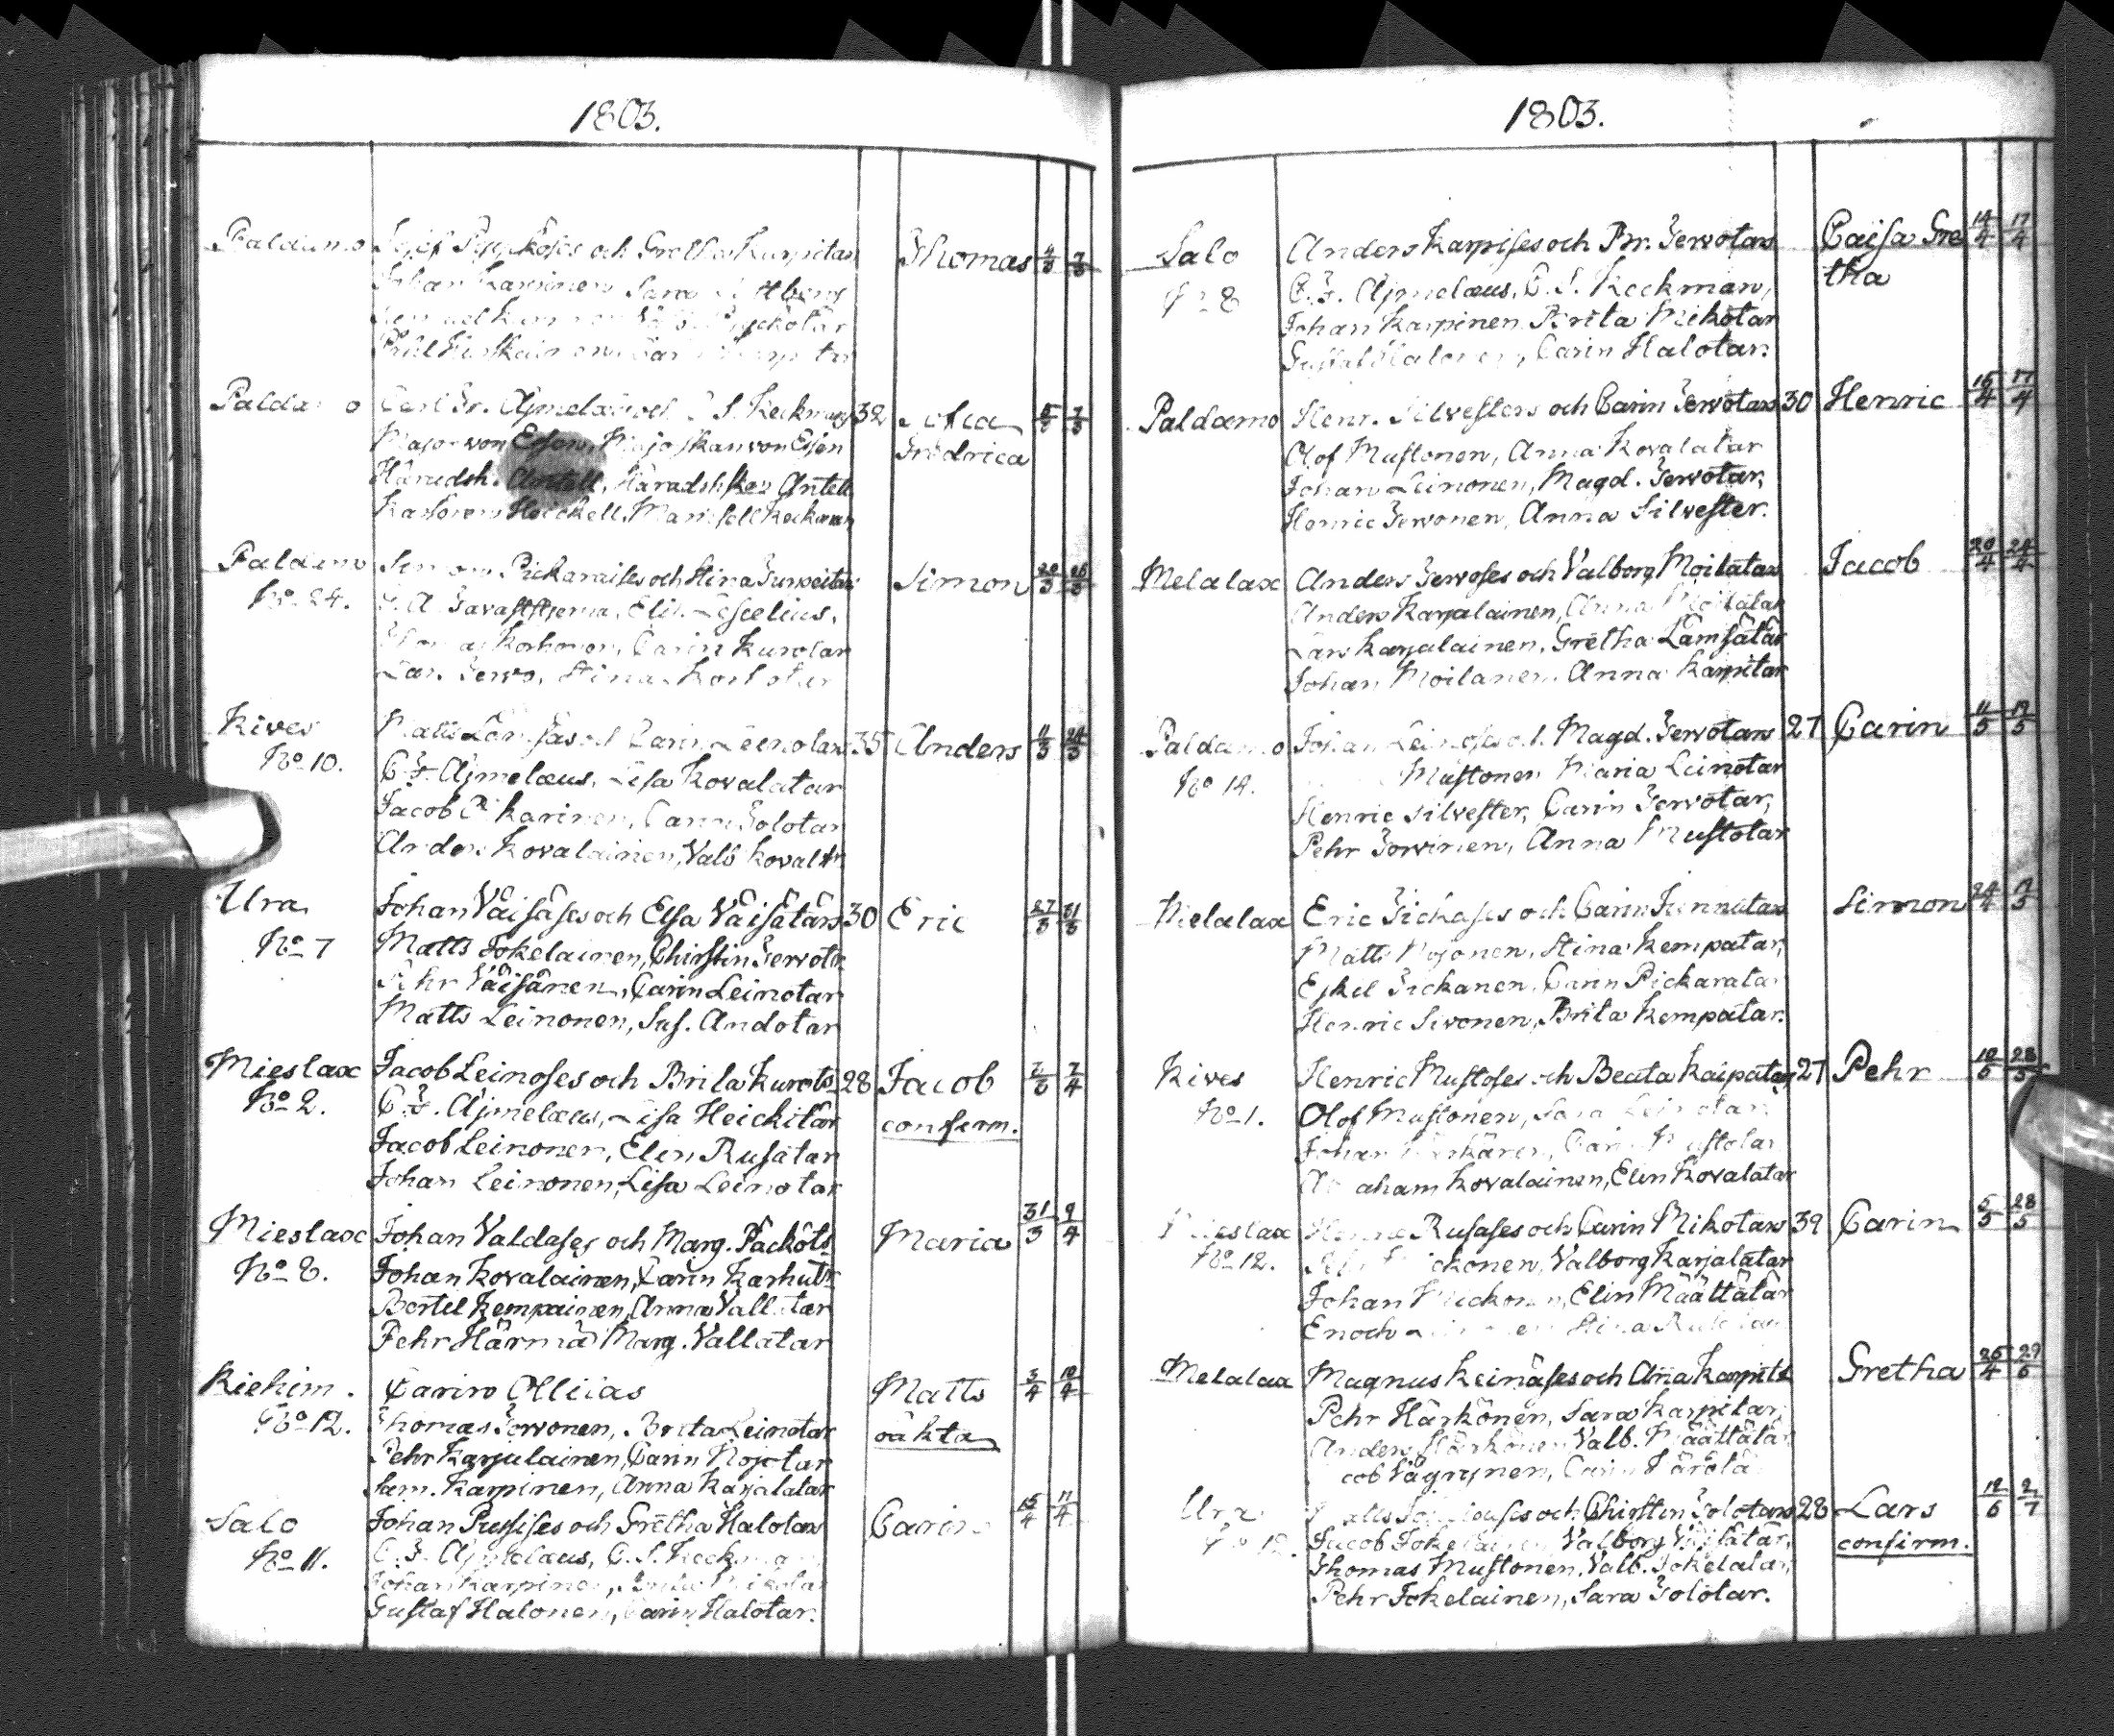 1803.
Paldamo och Gretha Karpitars Thomas 4/3 7/3
Johan Karpinen Sara
Paldamo Carl Fr. Ajmelæus och C. S. Keckmans 32 Sofia 5/3 7/3
Major von Essen, Majorskan von Essen Fredrica
Häradsh. Antell, Häradshkan Antell
Heickell, Mamsell Keckman
Paldamo Simon Pickaraises och Stina Simon 20/3
No 24. Elis.
Korhonen, Carin Kurotar
Lars Jervo, Stina
Kives Matts och Carin Leinotars 35 Anders 11/3 24/3
No 10. C. F. Ajmelæus, Lisa Kovalatar
Jacob Pikarinen, Carin Tolotar
Anders Kovalainen, Valb Kovaltr
Ura Johan Väisäses och Elsa Väisätärs 30 Eric 27/3 31/3
No 7 Matts Tokelainen, Christin Jervotr
Pehr Väisänen, Carin Leinotar
Matts Leinonen, Sus. Andotar
Mieslax Jacob Leinoses och Brita Kurots 28 Jacob 7/4
No 2. C. F. Ajmelæus, Lisa Heickitar confirm.
Jacob Leinonen, Elin Rusatar
Johan Leinonen, Lisa Leinotar
Mieslax Johan Valdases och Marg. Päcköts Maria 31/3 9/4
No 8. Johan Kovalainen, Carin Karhutr
Bertil Kempainen, Anna Vallatar
Pehr Härmä Marg. Vallatar
Kiehim. Carin Olliias Matts 3/4 10/4
No 12. Thomas Jervonen, Brita Leinotar oäkta
Pehr Karjulainen, Carin Nojotar
Sam. Karpinen, Anna Karjalatar
Salo Johan och Gretha Halotars Carin 15/4 17/4
No 11. C. F. Ajmelæus, C. S. Keckman
Johan Karpinen, Brita Mikotar
Gustaf Halonen, Carin Halotar.
1803.
Salo Anders Karpises och Br. Jervotars Cajsa Gre 14/4 17/4
No 8 C. F. Ajmelæus, C. S. Keckman, tha
Johan Karpinen Brita Mikotar
Gustaf Halonen, Carin Halotar.
Paldamo Henr. Silvesters och Carin Jervotars 30 Henric 15/4 17/4
Olof Mustonen, Anna Kovalatar
Johan Leinonen, Magd. Jervotar,
Henric Jervonen, Anna Silvester.
Melalax Anders Jervoses och Valborg Moilatars Jacob 20/4 24/4
Anders Karjalainen, Anna Moilatar
Lars Karjalainen, Gretha Lämsätär
Johan Moilanen, Anna Karpitar
Paldamo Johan Leinoses och Magd. Jervotars 27 Carin 11/5
No 14. Mustonen Maria Leinotar
Henric Silvester, Carin Jervotar,
Pehr Jorvinen, Anna Mustotar
Melalax Eric Tickases och Carin Simon
Matts Nojonen, Stina Kempatar,
Eskel Tickanen, Carin Pickaratar
Henric Sivonen, Brita Kempatar.
Kives Henric Mustoses och Beata Kaipatars 27 Pehr 28/5
No 1. Olof Mustonen, Sara Leinotar
Johan Carin Mustotar
Abraham Kovalainen, Elin Kovalatar
Mieslax Rusases och Carin Mikotars 39 Carin 5/5 28/5
No 12. Valborg Karjalatar
Johan Elin Määttätär
Enoch Stina
Melalax Magnus Keinäses och Aña Karpitr Gretha 26/4
Pehr Härkönen, Sara Karpitar,
Anders Härkönen Valb. Määttätär
Vägrynen, Carin
Ura och Christin Tolotars 28 Lars 12/6 2/7
Jacob Tokelainen Valborg Väisätär, confirm.
Thomas Mustonen, Valb. Tokelatar,
Pehr Tokelainen, Sara Tolotar.